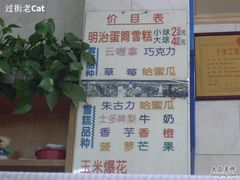 过街老Cat
价目表
明治蛋筒雪糕 小球2元 大球4元
品种 云喱拿 巧克力
草莓 哈蜜瓜
雪糕品种
朱古力 哈蜜瓜
士多啤梨 牛奶
香芋 香橙
菠萝 芒果
玉米爆花